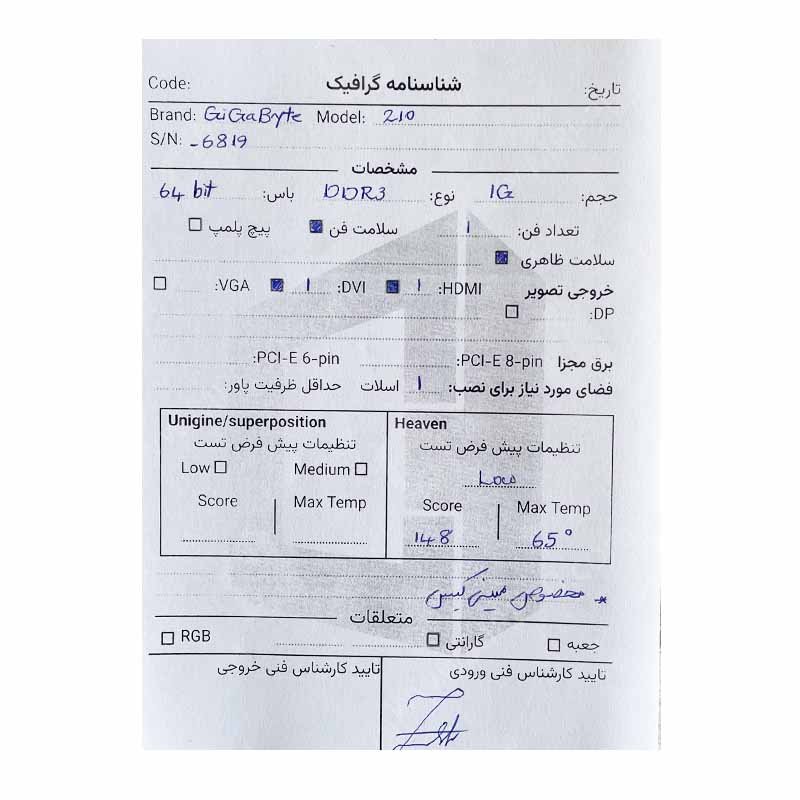 Code: شناسنامه گرافیک تاریخ:
Brand: GiGaByte Model: 210
S/N: -6819
مشخصات
حجم: 1G نوع: DDR3 باس: 64 bit
تعداد فن: 1 سلامت فن پیچ پلمپ
سلامت ظاهری
خروجی تصویر HDMI: 1 DVI: 1 VGA:
DP:
برق مجزا PCI-E 8-pin: PCI-E 6-pin:
فضای مورد نیاز برای نصب: 1 اسلات حداقل ظرفیت پاور:
Unigine/superposition
تنظیمات پیش فرض تست
Low Medium
Score Max Temp
Heaven
تنظیمات پیش فرض تست
Low
Score Max Temp
148 65°
* مخصوص مینی کیس
متعلقات
جعبه گارانتی RGB
تایید کارشناس فنی ورودی تایید کارشناس فنی خروجی